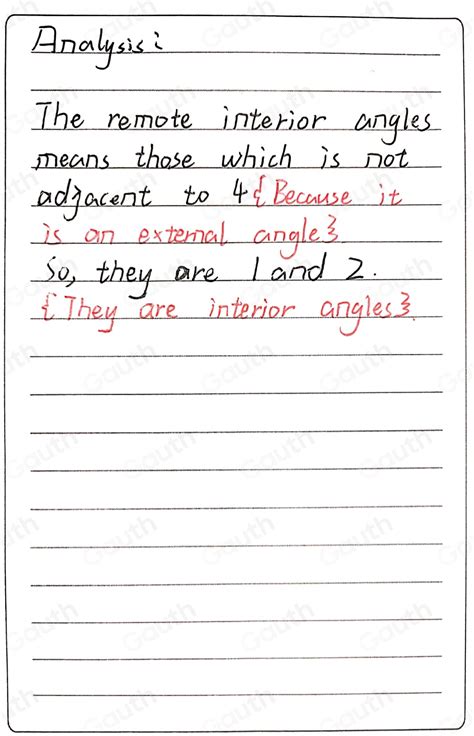 Analysis:
The remote interior angles
means those which is not
adjacent to 4{Because it
is an external angle}
So, they are 1 and 2.
{They are interior angles}.